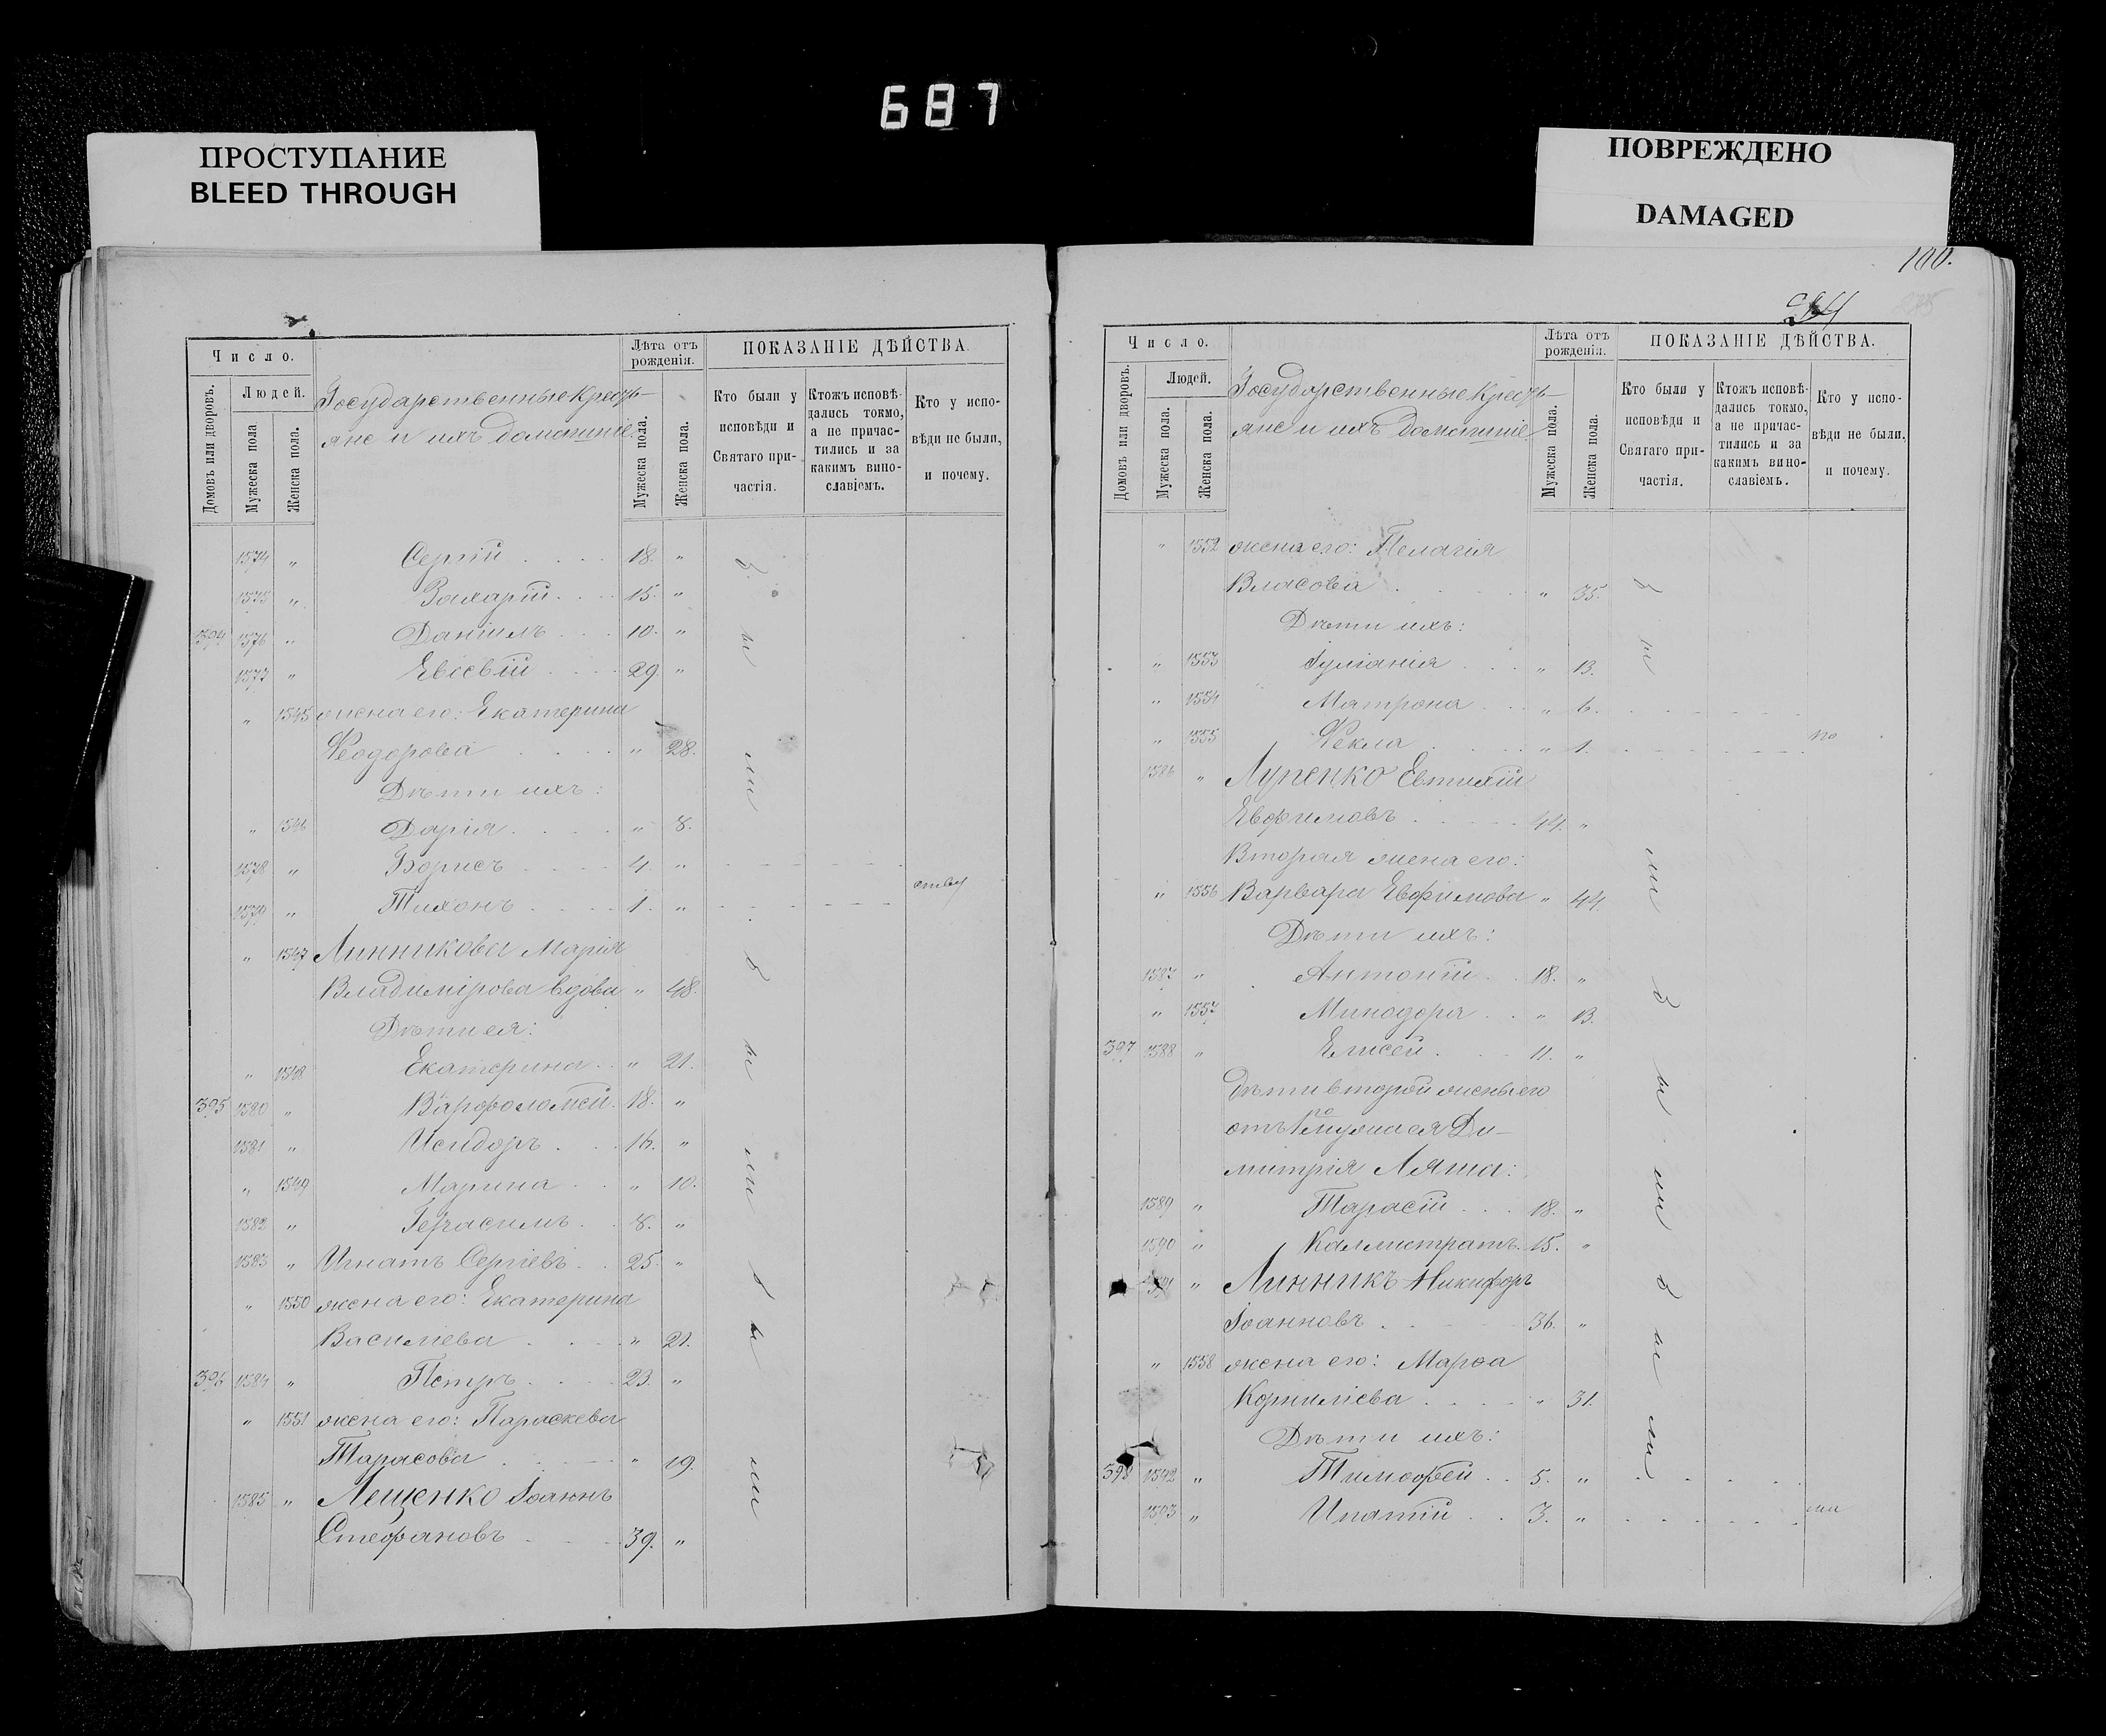 687
ПРОСТУПАНИЕ
BLEED THROUGH
ПОВРЕЖДЕНО
DAMAGED
Число.
Лѣта отъ рожденія.
ПОКАЗАНІЕ ДѢЙСТВА.
Домовъ или дворовъ.
Людей.
Мужеска пола
Женска пола.
Государственные кресть-
яне и ихъ домашніе
Мужеска пола.
Женска пола.
Кто были у исповѣди и Святаго при-частія.
Ктожъ исповѣ-дались токмо, а не причас-тились и за какимъ вино-славіемъ.
Кто у испо-вѣди не были, и почему.
1574 " Сергій 18. "
1575 " Захарій 15. "
394 1576 " Даніилъ 10. "
1577 " Евсевій 29. "
" 1545 жена его: Екатерина
Ѳеодорова " 28.
Дѣти ихъ:
" 1546 Дарія " 8.
1578 " Борисъ 4. "
1579 " Тихонъ 1. "
" 1547 Линникова Марія
Владимірова вдова " 48.
Дѣти ея:
" 1548 Екатерина " 21.
395 1580 " Варѳоломей 18. "
1581 " Исидоръ 16. "
" 1549 Марина " 10.
1582 " Герасимъ 8. "
1583 " Игнатъ Сергіевъ 25. "
" 1550 жена его: Екатерина
Василіева " 21.
396 1584 " Петръ 23. "
" 1551 жена его: Параскева
Тарасова " 19.
1585 " Лещенко Іоаннъ
Стефановъ 39. "
100.
Число.
Лѣта отъ рожденія.
ПОКАЗАНІЕ ДѢЙСТВА.
Домовъ или дворовъ.
Людей.
Мужеска пола.
Женска пола.
Государственные кресть-
яне и ихъ домашніе
Мужеска пола.
Женска пола.
Кто были у исповѣди и Святаго при-частія.
Ктожъ исповѣ-дались токмо, а не причас-тились и за какимъ вино-славіемъ.
Кто у испо-вѣди не были, и почему.
" 1552 жена его: Пелагія
Власова " 35.
Дѣти ихъ:
" 1553 Іуліанія " 13.
" 1554 Матрона " 6.
" 1555 Ѳекла " 1. по
1586 " Лупенко Евтихій
Евфимовъ 44. "
Вторая жена его:
" 1556 Варвара Евфимова " 44.
Дѣти ихъ:
1587 " Антоній 18. "
" 1557 Минодора " 13.
397 1588 " Елисей 11. "
Дѣти второй жены его
отъ 1го мужа ея Ди-
митрія Ляша:
1589 " Тарасій 18. "
1590 " Каллистратъ 15. "
" Линникъ Никифоръ
Іоанновъ 36. "
" 1558 жена его: Марѳа
Корниліева " 31.
Дѣти ихъ:
398 1592 " Тимоѳей 5. "
1593 " Ипатій 3. "